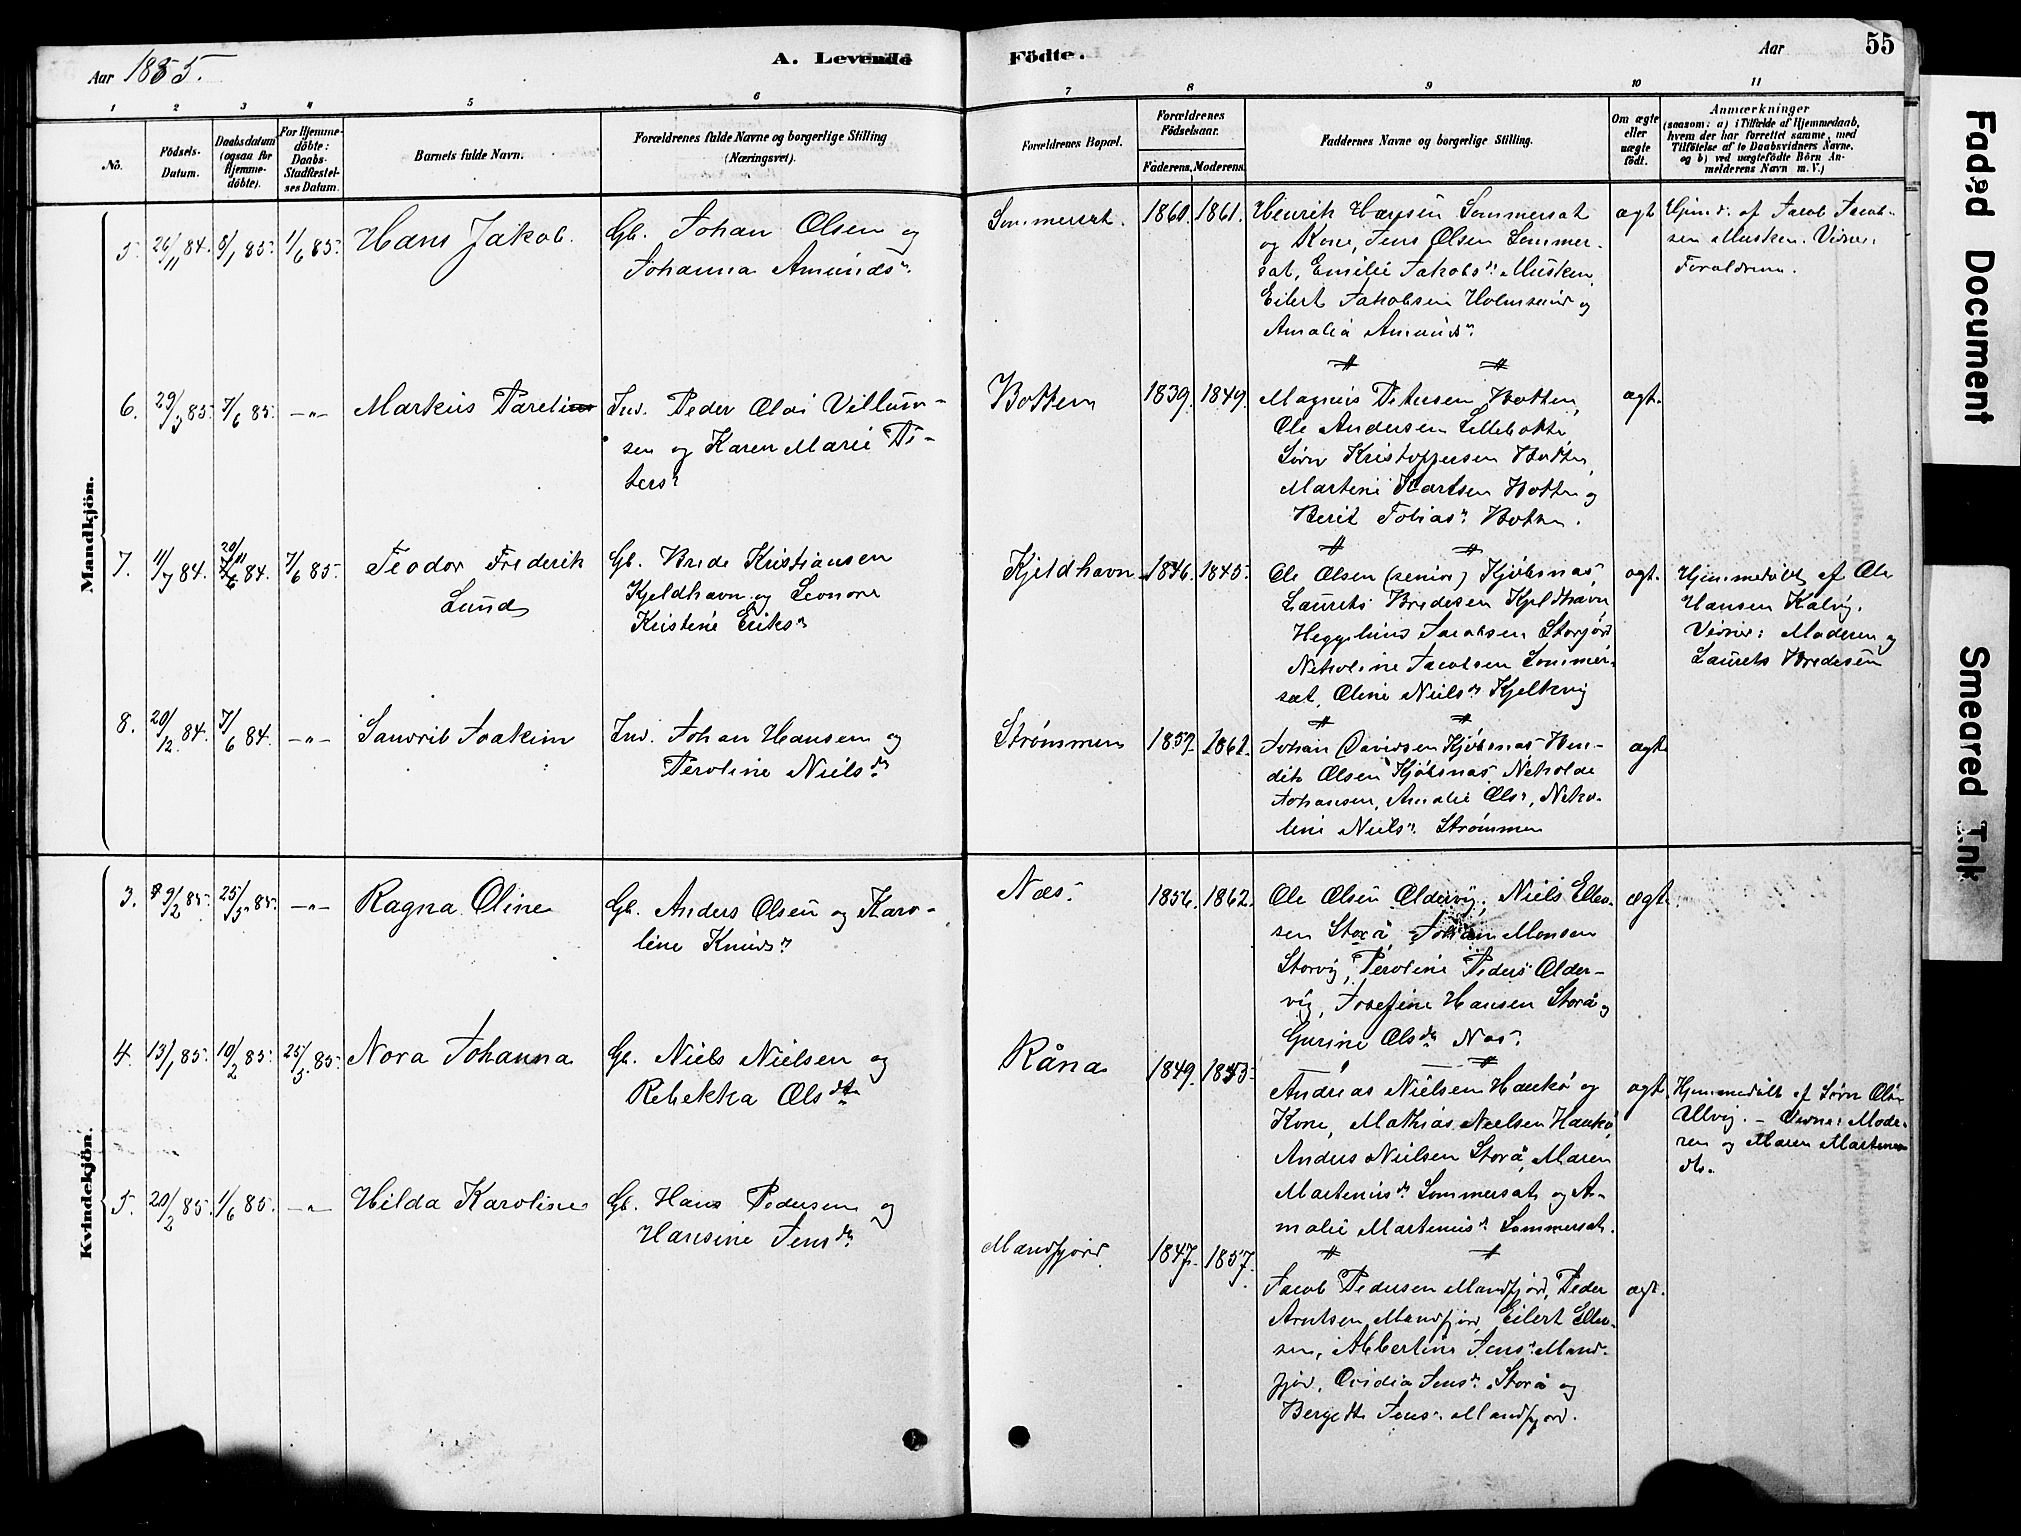 Aar 1885.
A. Levende
Födte.
Aar
55
1 2 3 4 5 6 7 8 9 10 11
No.
Födsels-Datum.
Daabsdatum (ogsaa for Hjemmedöbte).
For Hjemmedöbte: Daabs-Stadfæstelses Datum.
Barnets fulde Navn.
Forældrenes fulde Navne og borgerlige Stilling
(Næringsvei).
Forældrenes Bopæl.
Forældrenes Födselsaar.
Faderens. Moderens.
Faddernes Navne og borgerlige Stilling.
Om ægte eller uægte födt.
Anmærkninger
(saasom: a) i Tilfælde af Hjemmedaab,
hvem der har forrettet samme, med
Tilföielse af to Daabsvidners Navne,
og b) ved uægtefödte Börn An-
melderens Navn m. V.)
Mandkjön.
5. 26/11 84. 8/1 85. 1/6 85. Hans Jakob.
Gb. Johan Olsen og
Johanna Amundsn.
Sommerset. 1860. 1861.
Henrik Hansen Sommersat
og Kone, Jens Olsen Sommer-
sat, Emilie Jakobsn. Musken
Eilert Jakobsen Holmsund og
Amalia Amundsn.
agt
Hjmd. af Jacob Jacob-
sen Musken. Vidner:
Foraldrene.
6. 29/3 85. 7/6 85. -"- Markus Pareli
Inv. Peder Olai Villum-
sen og Karen Marie Pe-
tersn
Botten 1839. 1849.
Magnus Petersen Botten,
Ole Andersen Lillebotten
Sörn Kristoffersen Botten,
Martine Karlsen Botten og
Berit Tobiasn. Botten.
agt.
7. 11/7 84. 20/11 84. 7/6 85. Teodor Frederik
Lund
Gb. Brede Kristiansen
Kjeldhavn og Leonore
Kristine Eriksn
Kjeldhavn 1846. 1845.
Ole Olsen (senior) Kjöbsnas
Laurets Bredesen Kjeldhavn
Jacobsen Storjord
Nekoline Jacobsen Sommer-
sat, Oline Nielsdr Kjelkvig
agt.
Hjemmedöbt af Ole
Hansen Kalvig.
Vidner: Moderen og
Laurets Bredesen
8. 20/12 84. 7/6 84. -"- Joakim
Inv. Johan Hansen og
Peroline Nielsdr
Strømmen 1859. 1862.
Johan Davidsen Kjöbsnas Ben-
dik Olsen Kjöbsnas Nekolde
Johansen, Amalie Olsn, Neko-
line Nielsn. Strømmen
agt
Kvindekjön.
3. 9/2 85. 25/5 85. -"- Ragna Oline
Gb. Anders Olsen og Karo-
line Knudsn
Næs. 1856. 1862.
Ole Olsen Oldervig, Niels Ellev-
sen Storå, Johan Monsen
Storvig, Peroline Peders Older-
vig, Josefine Hansen Storå og
Gurine Olsdr Nas.
ægt.
4. 13/1 85. 10/2 85. 25/5 85. Nora Johanna
Gb. Niels Nielsen og
Rebekka Olsdtr
Råna 1849. 1843.
Andreas Nielsen Haukö og
Kone, Mathias Nielsen Haukö
Anders Nielsen Storå, Maren
Martenusdr Sommersat og A-
malie Martenusn. Sommersat.
agt.
Hjemmedöbt af Sörn Olsn
Ulvig. - Vidner: Mode-
ren og Maren Martenus-
dtr.
5. 20/2 85. 1/6 85. -"- Hilda Karoline
Gb. Hans Pedersen og
Hansine Jensdr
Mandfjord. 1847. 1857.
Jacob Pedersen Mandfjord, Peder
Arntsen Mandfjord, Eilert Ellev-
sen, Abbertine Jensn. Mand-
fjord, Ovidia Jensn. Storå og
Bergette Jensn. Mandfjord.
agt.
Faded Document
Smeared Ink